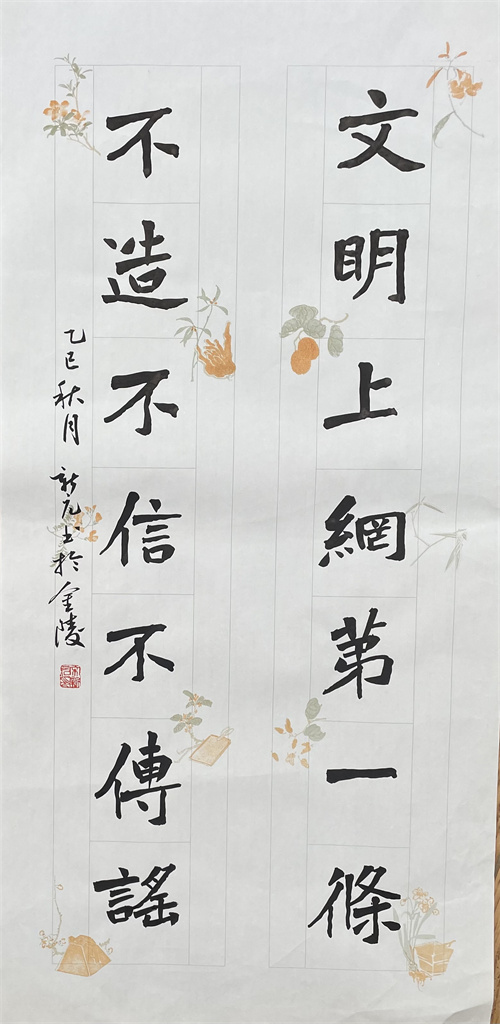 文明上網第一條
不造不信不傳謠
乙巳秋月 新元书於金陵